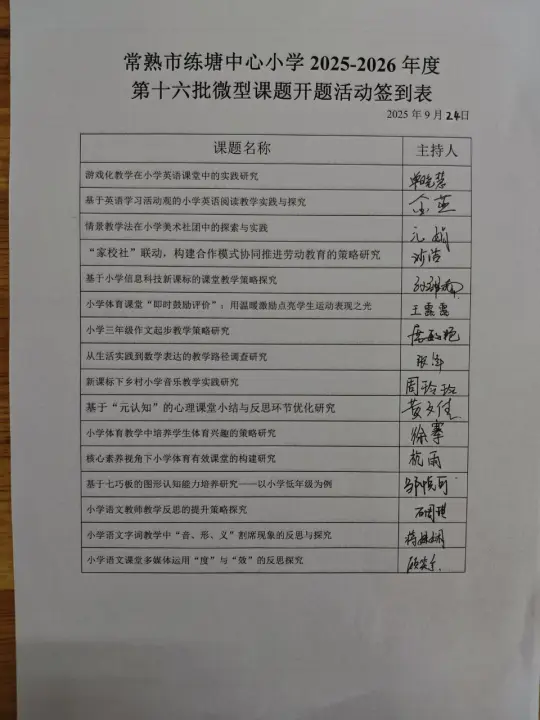 常熟市练塘中心小学 2025-2026 年度
第十六批微型课题开题活动签到表
2025 年 9 月 24日
课题名称 主持人
游戏化教学在小学英语课堂中的实践研究
基于英语学习活动观的小学英语阅读教学实践与探究 金燕
情景教学法在小学美术社团中的探索与实践 元娟
“家校社”联动，构建合作模式协同推进劳动教育的策略研究 刘浩
基于小学信息科技新课标的课堂教学策略探究
小学体育课堂“即时鼓励评价”：用温暖激励点亮学生运动表现之光 王露露
小学三年级作文起步教学策略研究
从生活实践到数学表达的教学路径调查研究
新课标下乡村小学音乐教学实践研究 周玲玲
基于“元认知”的心理课堂小结与反思环节优化研究 黄文佳
小学体育教学中培养学生体育兴趣的策略研究 徐赛
核心素养视角下小学体育有效课堂的构建研究 杭雨
基于七巧板的图形认知能力培养研究——以小学低年级为例
小学语文教师教学反思的提升策略探究
小学语文字词教学中“音、形、义”割席现象的反思与探究
小学语文课堂多媒体运用“度”与“效”的反思探究